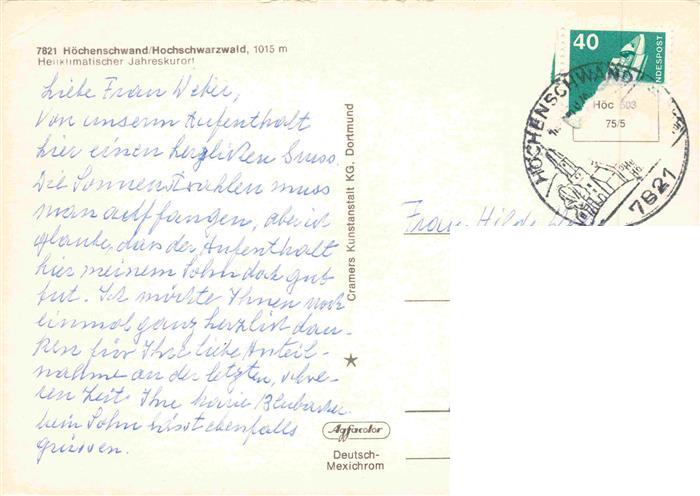 7821 Höchenschwand/Hochschwarzwald, 1015 m
Heilklimatischer Jahreskurort
Liebe Frau Weber,
Von unserm Aufenthalt
hier einen herzlichen Gruss.
Die Sonnenstrahlen muss
man auffangen, aber ich
glaube, dass der Aufenthalt
hier meinem Sohn doch gut
tut. Ich möchte Ihnen noch
einmal ganz herzlich dan-
ken für Ihre liebe Anteil-
nahme an der letzten, schwe-
ren Zeit. Ihre
Mein Sohn lässt ebenfalls
grüssen.
Cramers Kunstanstalt KG. Dortmund
Agfacolor
Deutsch-
Mexichrom
40
HÖCHENSCHWAND
7821
Höc 503
75/5
Frau Hilde